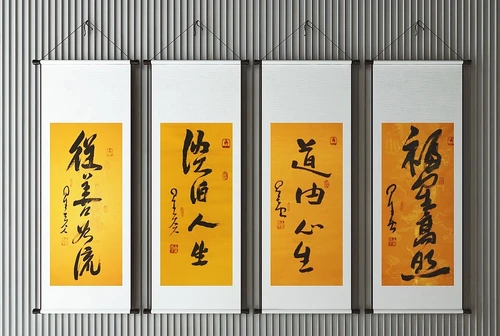 從善如流
淡泊人生
道由心生
福星高照